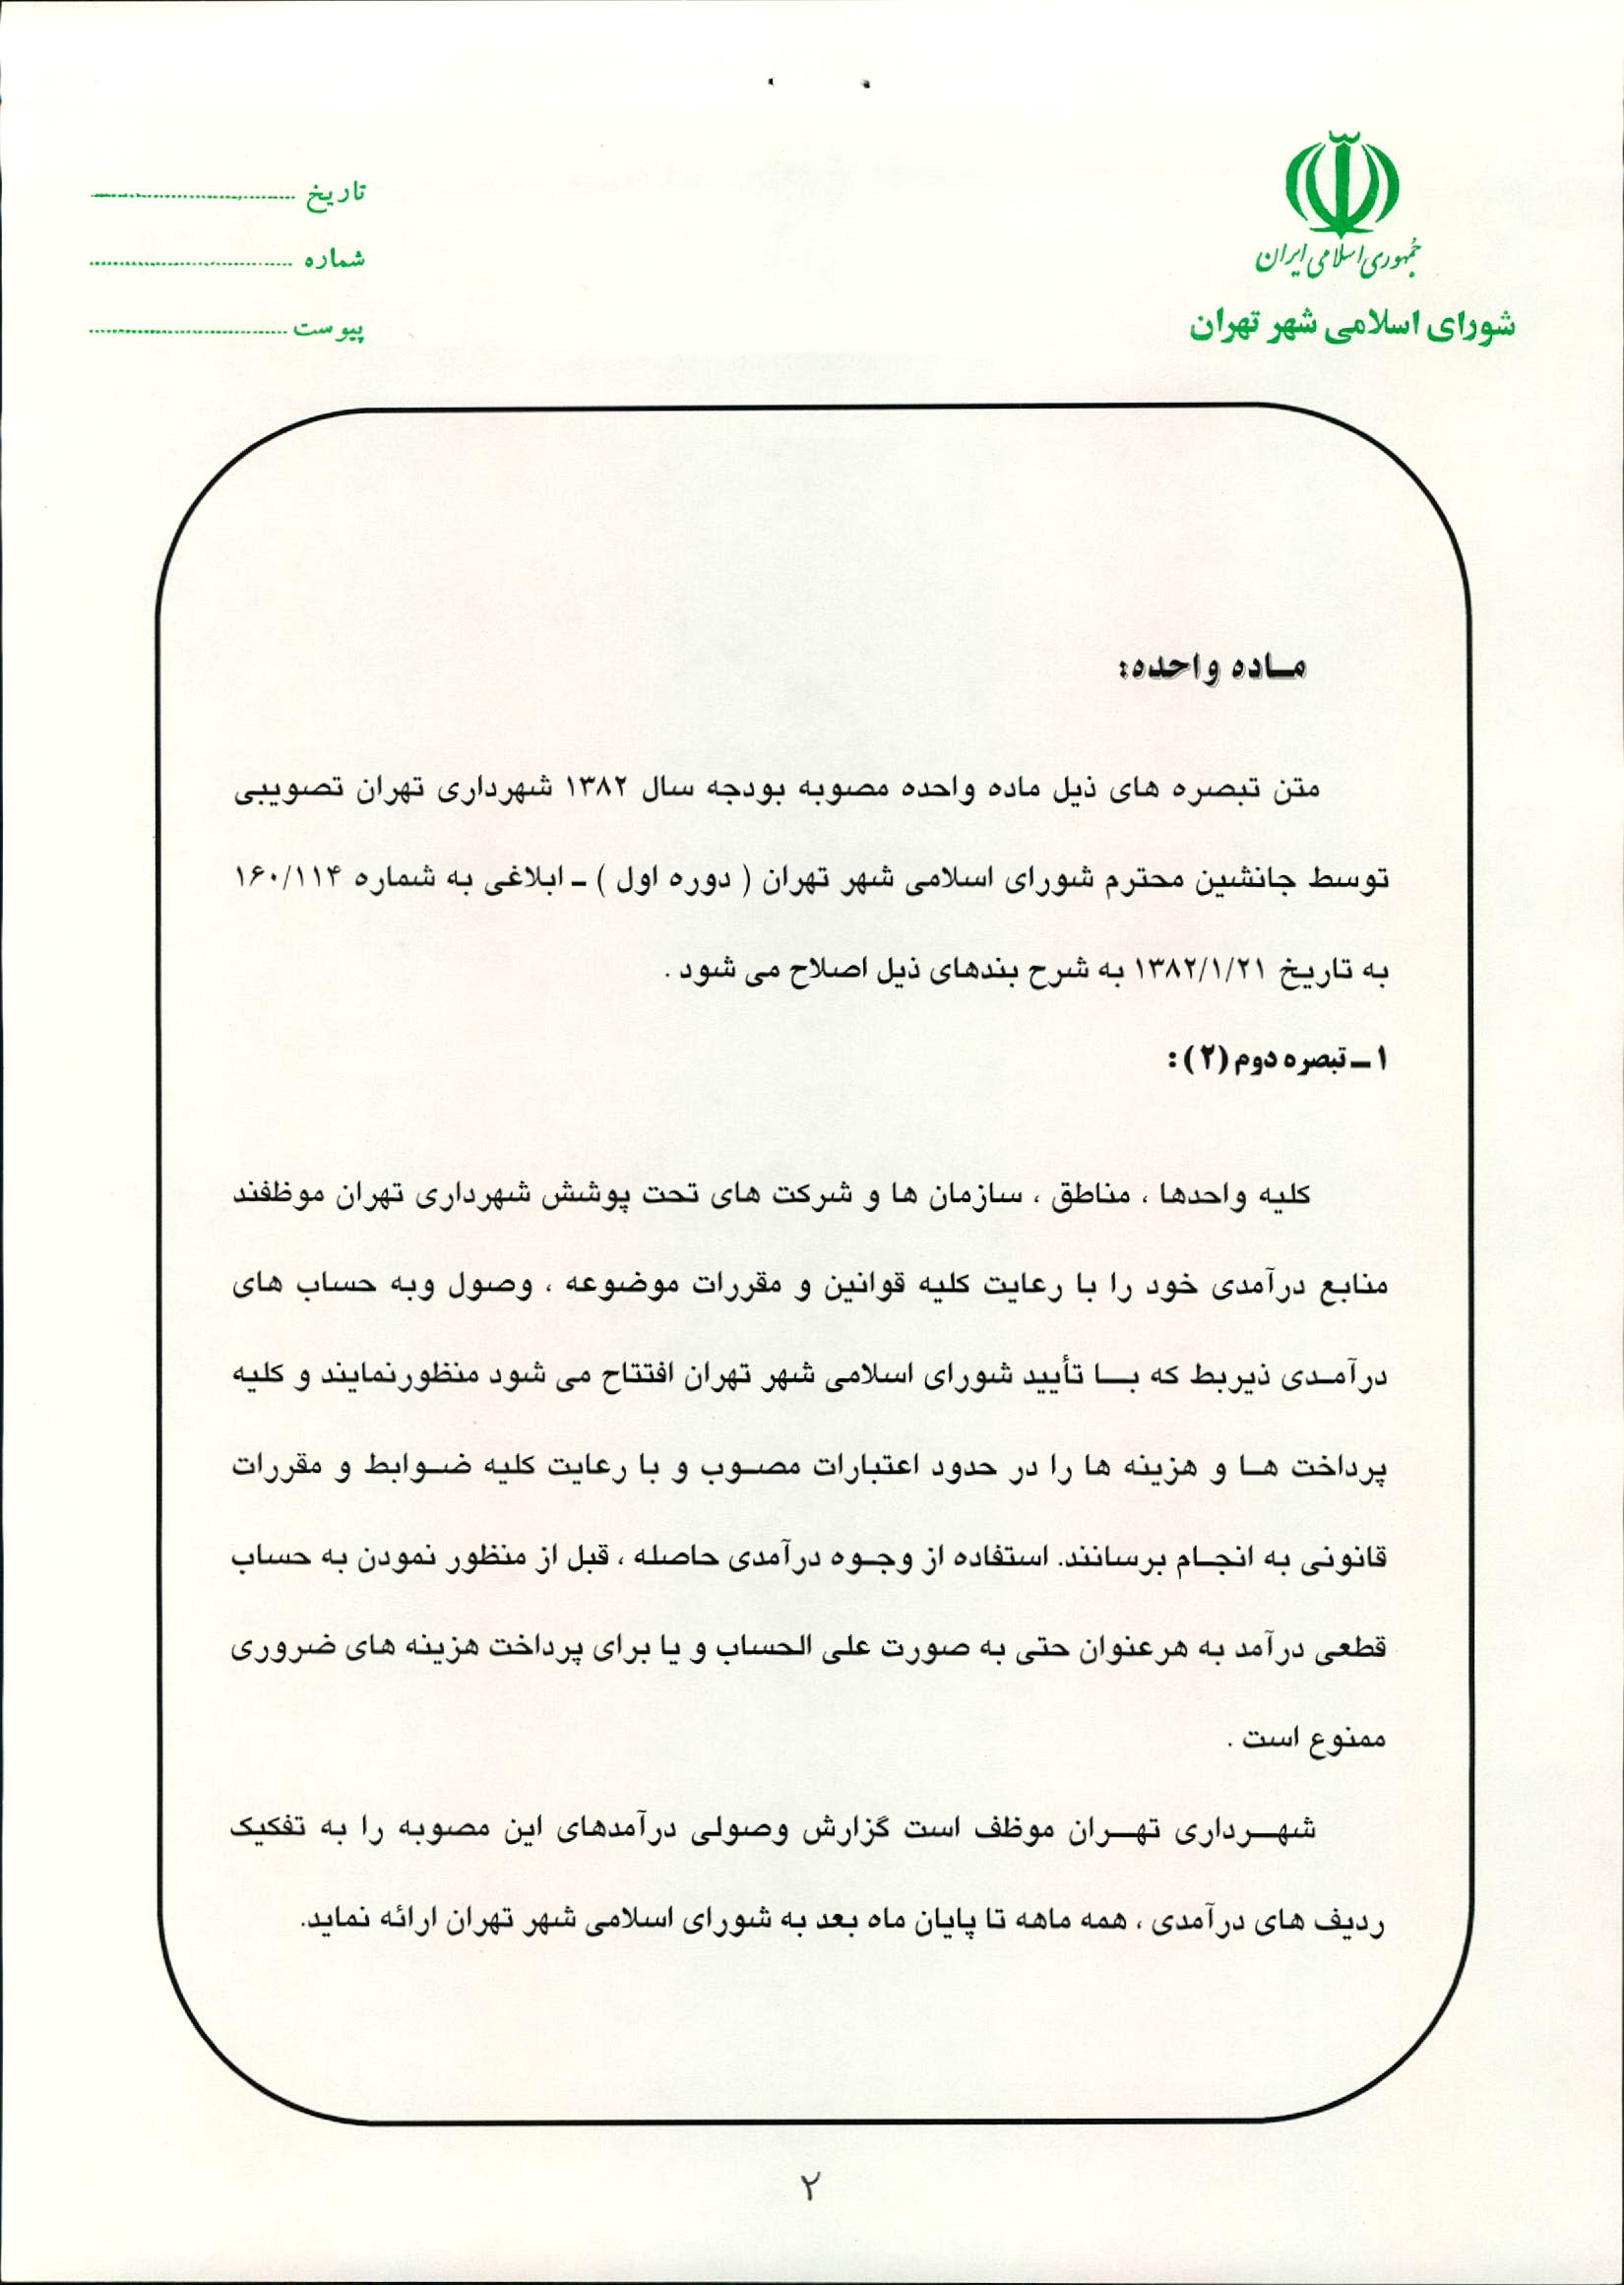 جمهوری اسلامی ایران
شورای اسلامی شهر تهران
تاریخ
شماره
پیوست
مـاده واحده:
متن تبصره های ذیل ماده واحده مصوبه بودجه سال ۱۳۸۲ شهرداری تهران تصویبی
توسط جانشین محترم شورای اسلامی شهر تهران ( دوره اول ) ـ ابلاغی به شماره ۱۶۰/۱۱۴
به تاریخ ۱۳۸۲/۱/۲۱ به شرح بندهای ذیل اصلاح می شود .
۱ ـ تبصره دوم (۲) :
کلیه واحدها ، مناطق ، سازمان ها و شرکت های تحت پوشش شهرداری تهران موظفند
منابع درآمدی خود را با رعایت کلیه قوانین و مقررات موضوعه ، وصول وبه حساب های
درآمـدی ذیربط که بــا تأیید شورای اسلامی شهر تهران افتتاح می شود منظورنمایند و کلیه
پرداخت هـا و هزینه ها را در حدود اعتبارات مصـوب و با رعایت کلیه ضـوابط و مقررات
قانونی به انجـام برسانند. استفاده از وجـوه درآمدی حاصله ، قبل از منظور نمودن به حساب
قطعی درآمد به هرعنوان حتی به صورت علی الحساب و یا برای پرداخت هزینه های ضروری
ممنوع است .
شهــرداری تهــران موظف است گزارش وصولی درآمدهای این مصوبه را به تفکیک
ردیف های درآمدی ، همه ماهه تا پایان ماه بعد به شورای اسلامی شهر تهران ارائه نماید.
۲